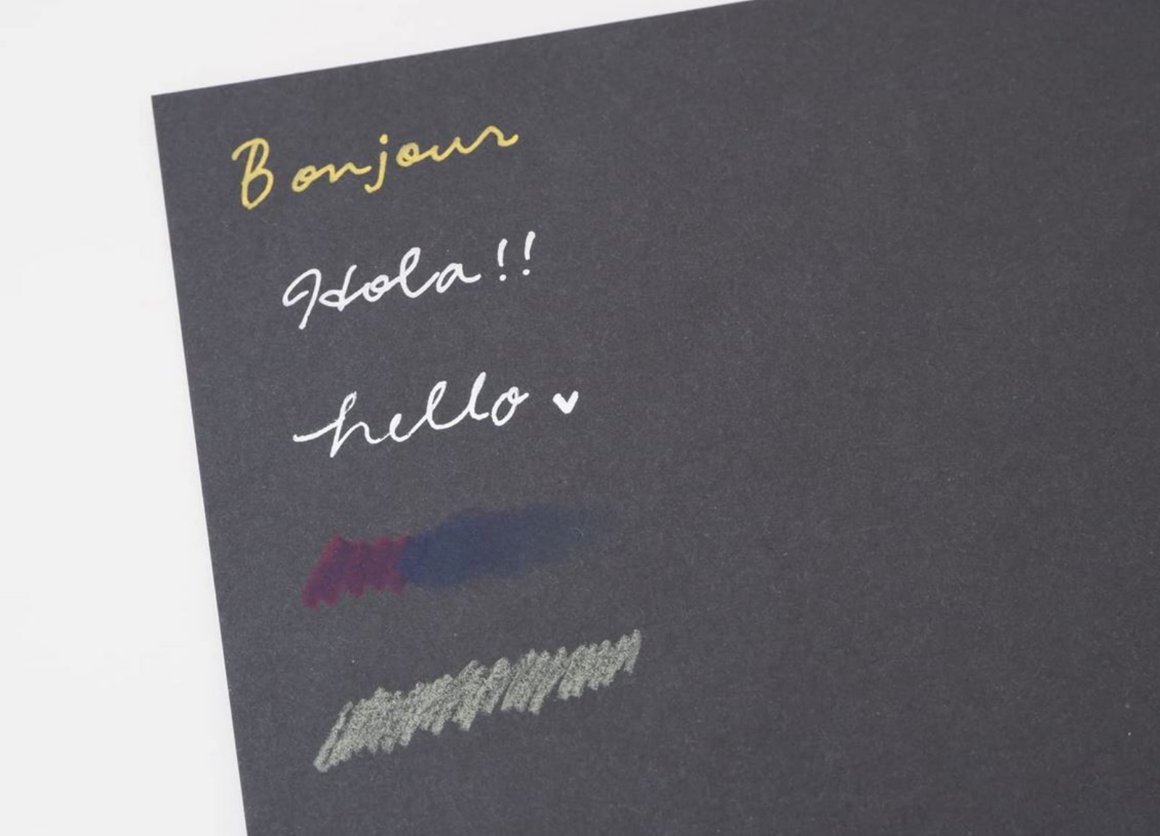 Bonjour
Hola!!
hello ♥